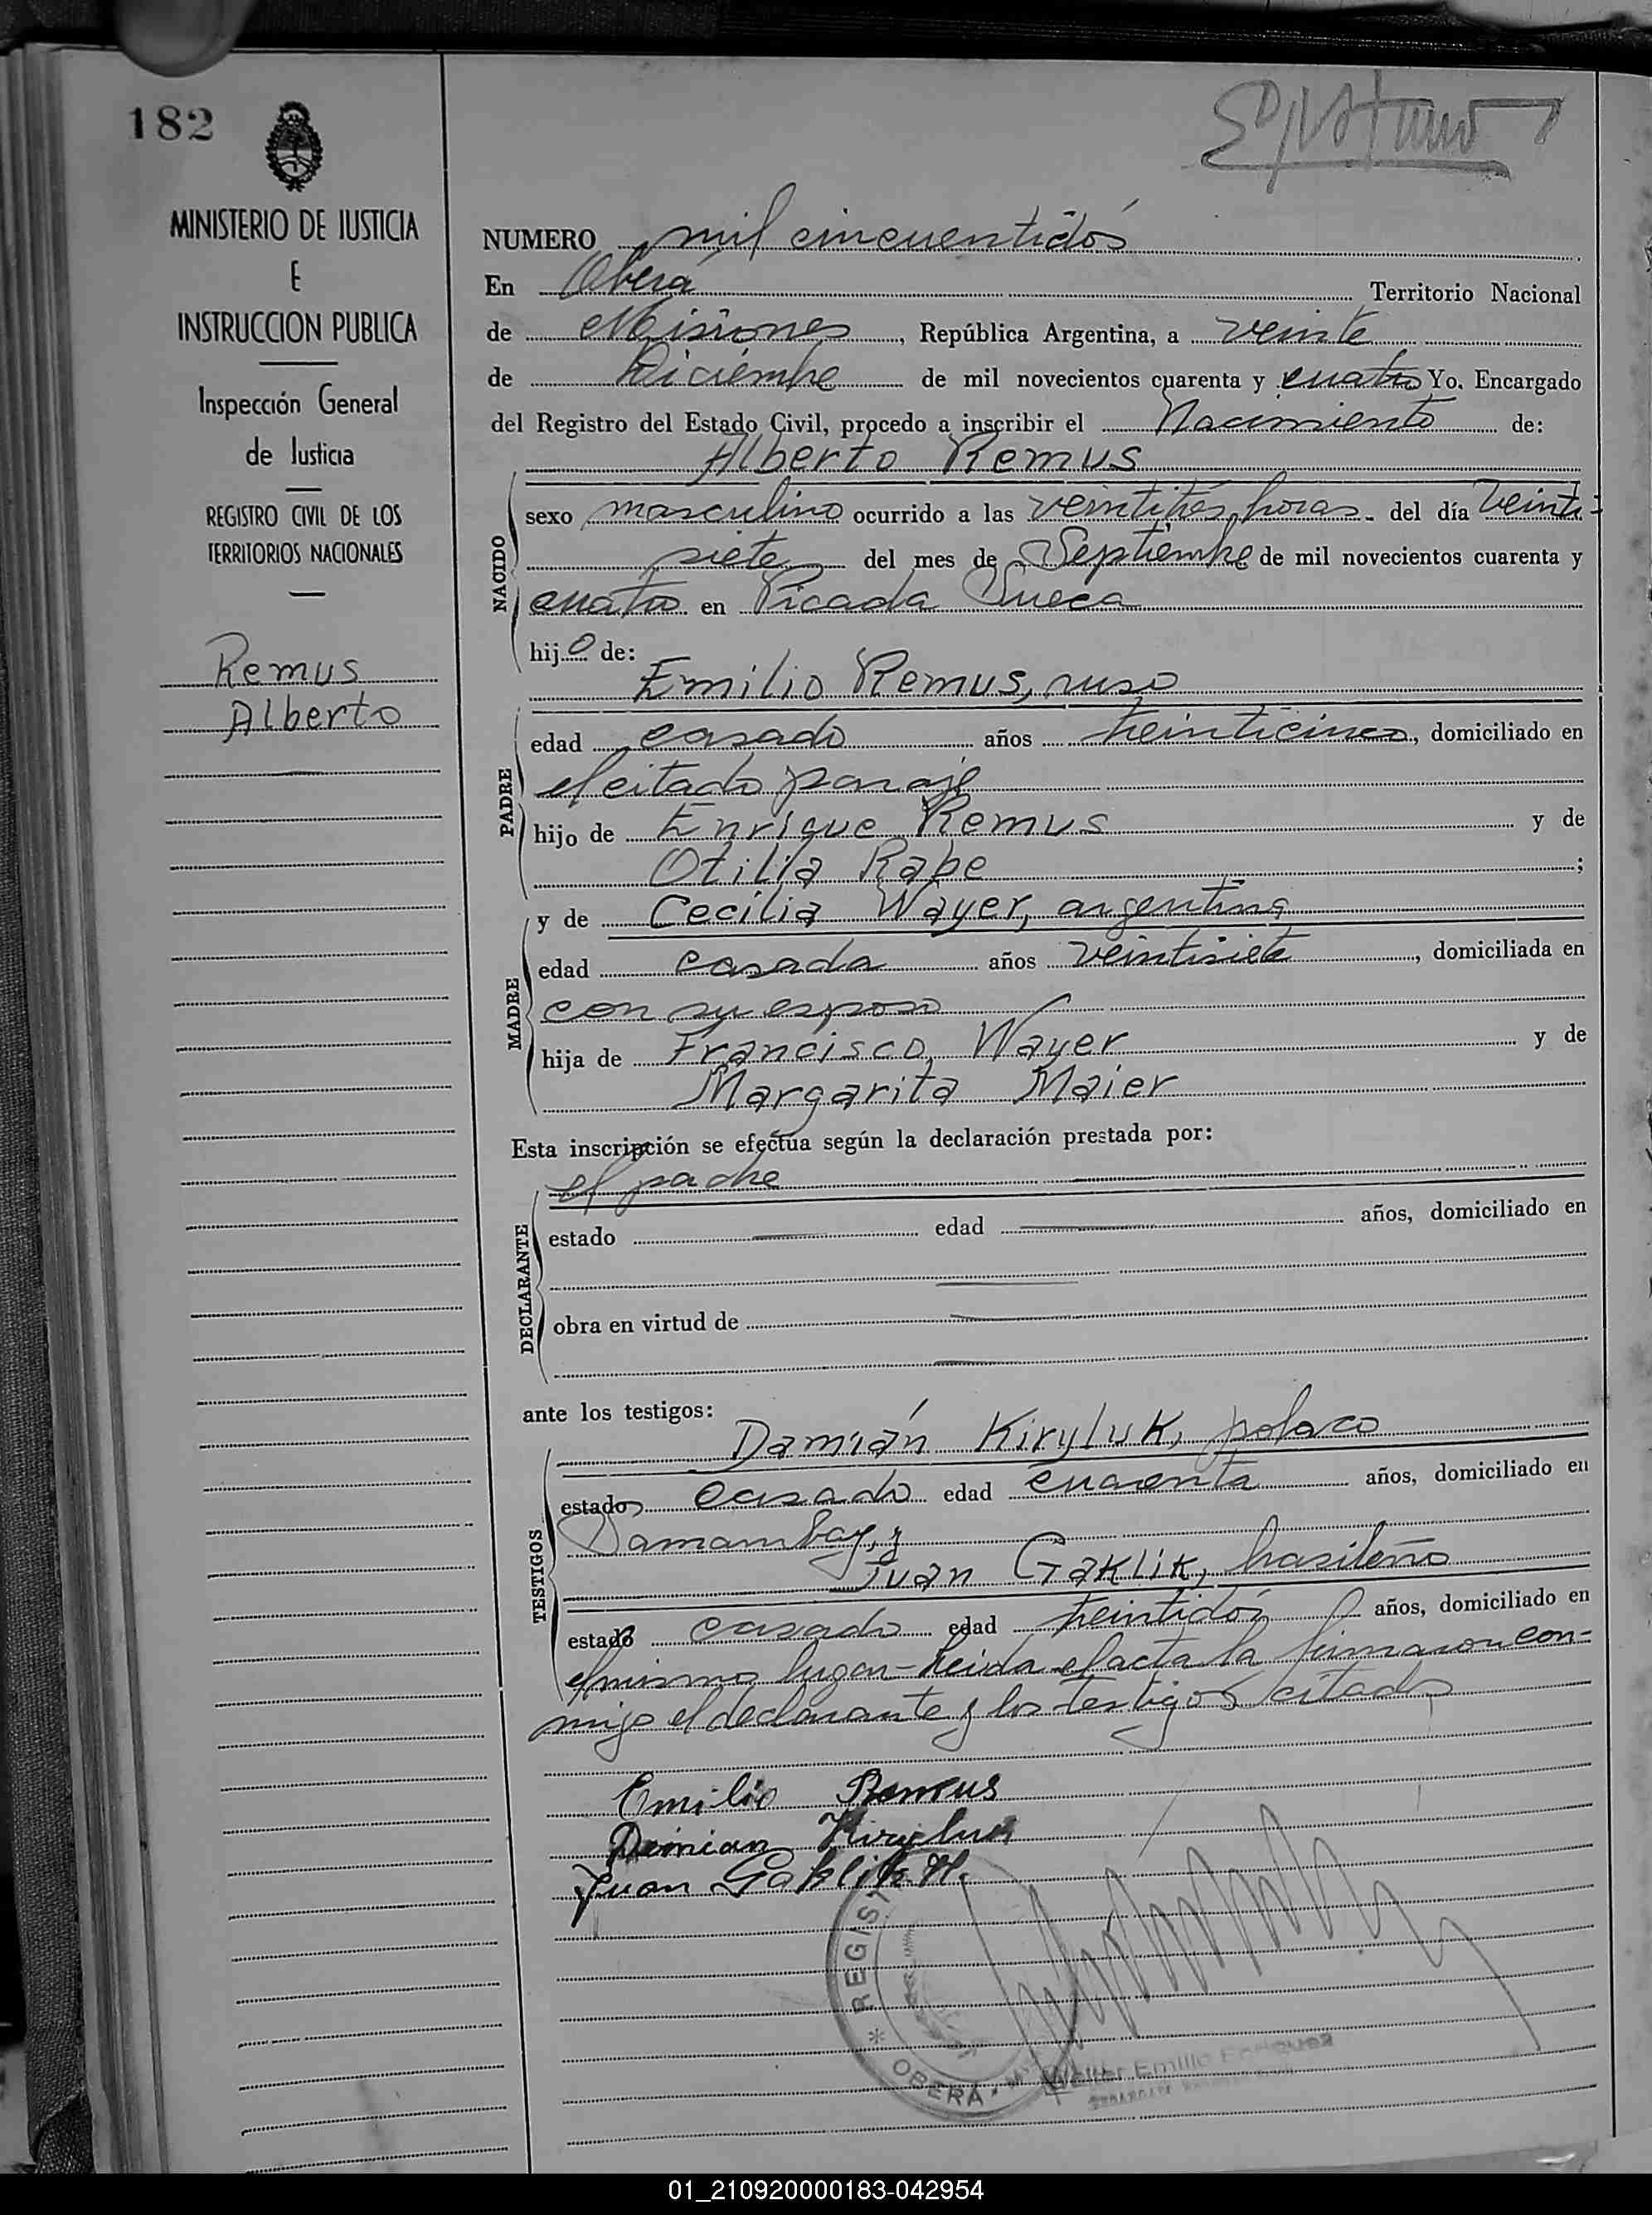 182
MINISTERIO DE JUSTICIA
E
INSTRUCCION PUBLICA
Inspección General
de Justicia
REGISTRO CIVIL DE LOS
TERRITORIOS NACIONALES
Remus
Alberto
NUMERO mil cincuentidós
En Oberá Territorio Nacional
de Misiones, República Argentina, a veinte
de Diciembre de mil novecientos cuarenta y cuatro Yo. Encargado
del Registro del Estado Civil, procedo a inscribir el Nacimiento de:
Alberto Remus
NACIDO
sexo masculino ocurrido a las veintitrés horas del día veinti-
siete del mes de Septiembre de mil novecientos cuarenta y
cuatro en Picada Sueca
hijo de:
Emilio Remus, ruso
PADRE
edad casado años treinticinco, domiciliado en
el citado paraje
hijo de Enrique Remus y de
Otilia Rabe;
MADRE
y de Cecilia Wayer, argentina
edad casada años veintisiete, domiciliada en
con su esposo
hija de Francisco Wayer y de
Margarita Maier
Esta inscripción se efectúa según la declaración prestada por:
el padre
DECLARANTE
estado edad años, domiciliado en
obra en virtud de
ante los testigos:
Damián Kiryluk, polaco
TESTIGOS
estado casado edad cuarenta años, domiciliado en
Samambay, y
Juan Gaklik, brasileño
estado casado edad treintidós años, domiciliado en
el mismo lugar- Leida el acta la firmaron con-
migo el declarante y los testigos citados
Emilio Remus
Demian Kiryluk
Juan Gaklik H.
REGIST
OBERA
Walter Emilio Enriquez
01_210920000183-042954